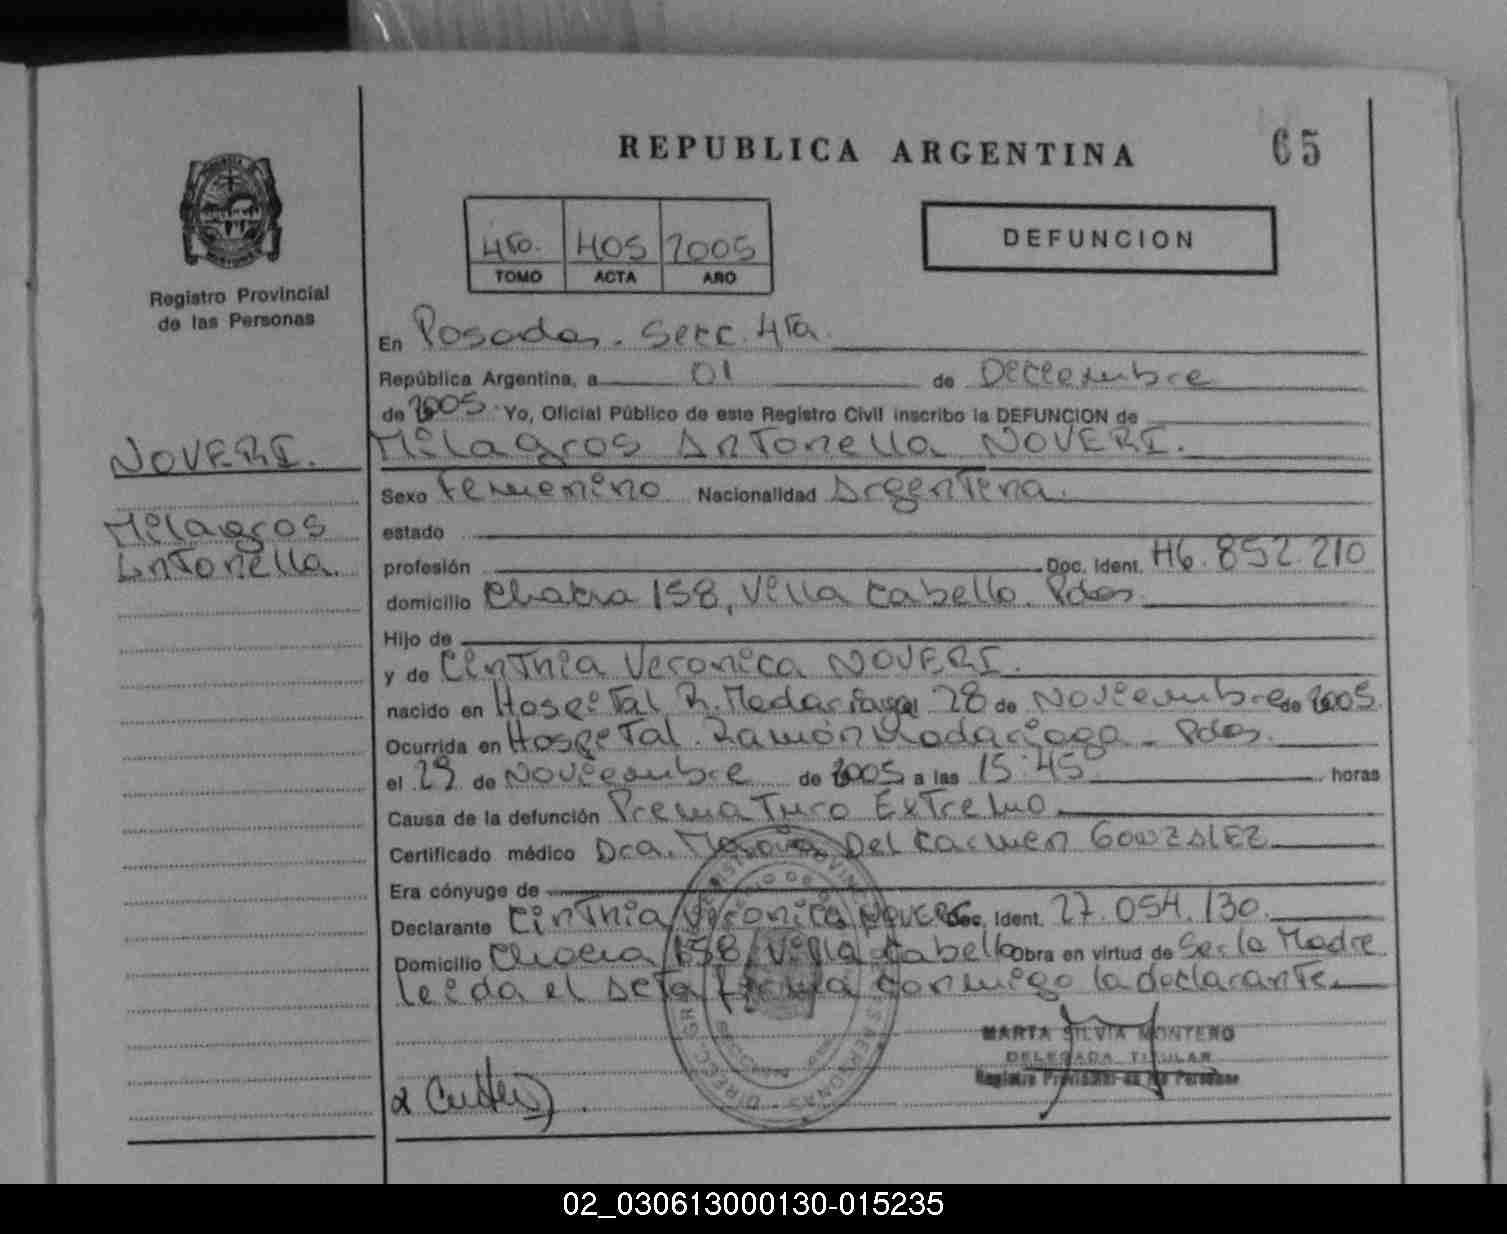 REPUBLICA ARGENTINA
65
4to. 405 2005
TOMO ACTA AÑO
DEFUNCION
Registro Provincial
de las Personas
NOVERI.
Milagros
Antonella.
En Posadas. Secc. 4ta.
República Argentina, a 01 de Diciembre
de 2005 Yo, Oficial Público de este Registro Civil inscribo la DEFUNCION de
Milagros Antonella NOVERI.
Sexo Femenino Nacionalidad Argentina.
estado
profesión Doc. Ident. 46.852.210
domicilio Chacra 158, Villa Cabello. Pdas
Hijo de
y de Cinthia Veronica NOVERI.
nacido en Hospital R. Madariaga el 28 de Noviembre de 2005.
Ocurrida en Hospital Ramón Madariaga - Pdas.
el 29 de Noviembre de 2005 a las 15:45 horas
Causa de la defunción Prematuro Extremo
Certificado médico Dra. María Del Carmen GONZALEZ
Era cónyuge de
Declarante Cinthia Veronica NOVERI Doc. Ident. 27.054.130.
Domicilio Chacra 158, Villa Cabello Obra en virtud de Ser la Madre
leida el Acta firma conmigo la declarante.
MARTA SILVIA MONTERO
DELEGADA TITULAR
Registro Provincial de las Personas
02_030613000130-015235